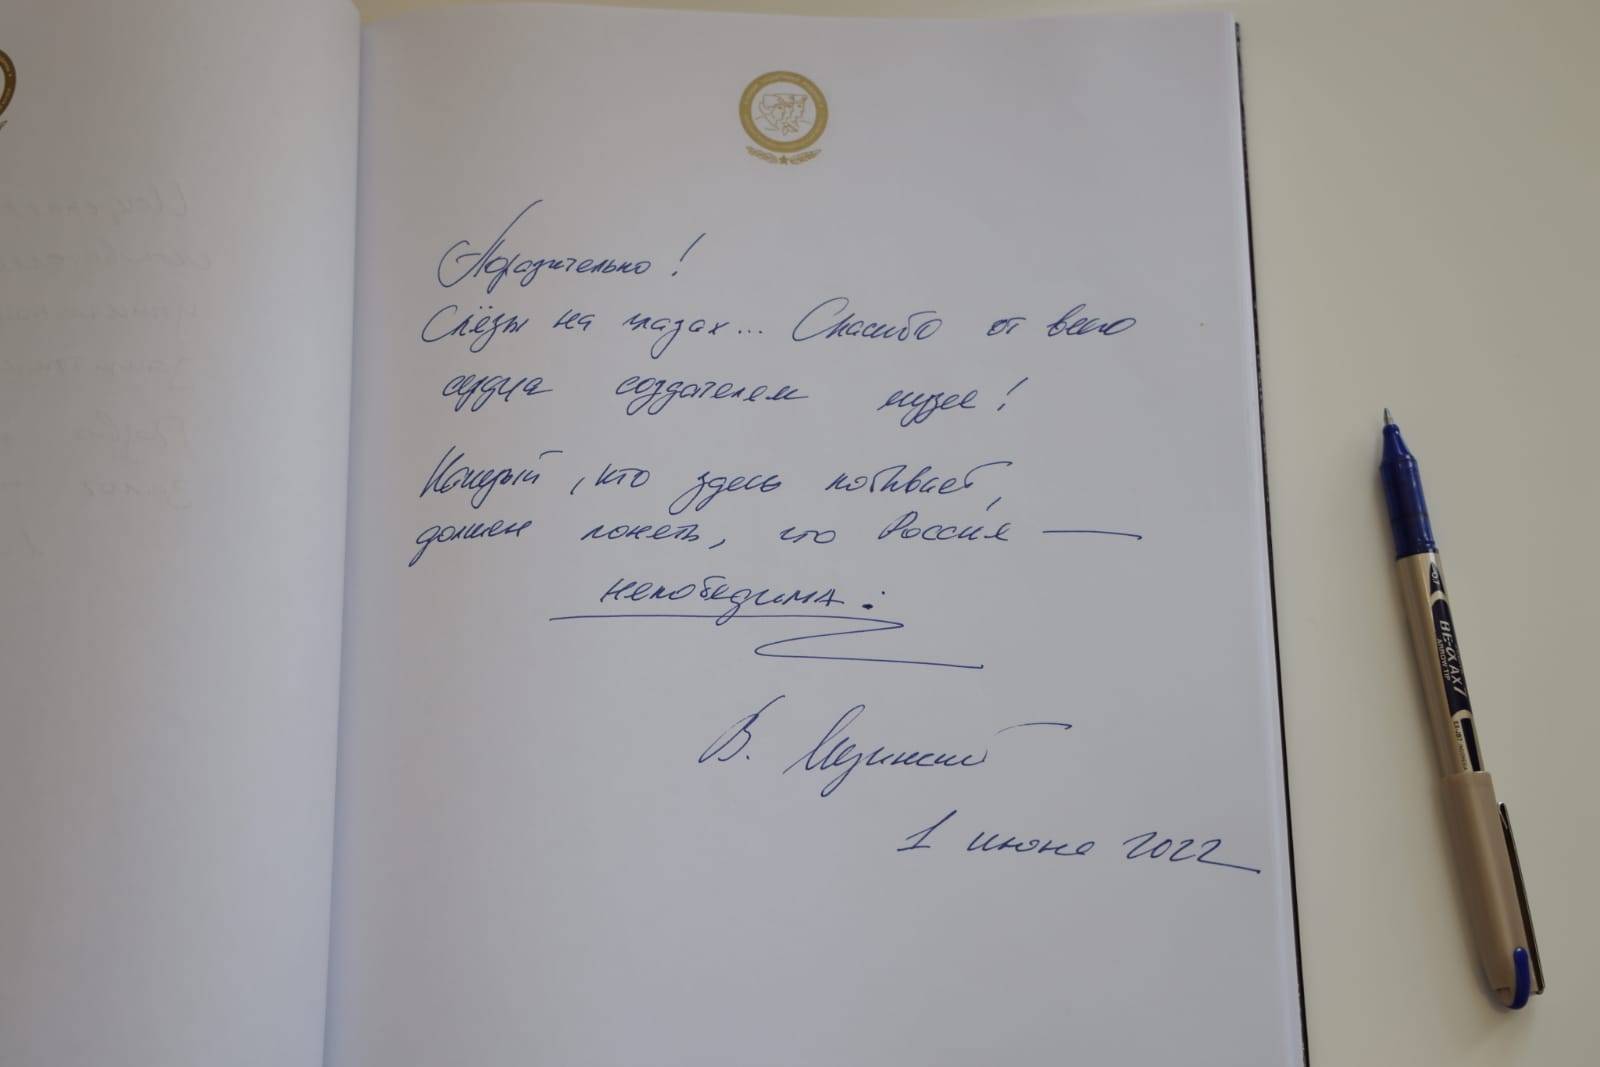 Поразительно!
Слёзы на глазах... Спасибо от всего
сердца создателям музея!
Каждый, кто здесь побывает,
должен понять, что Россия —
непобедима!
В. Мединский
1 июня 2022
BE-αAX7
ARROW TIP
0.7